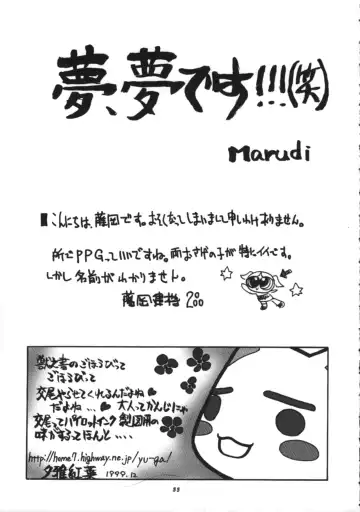 夢、夢です!!!(笑)
Marudi
■こんにちは、藤岡です。おそくなってしまいまして申しわけありません。
所でPPGっていいですね。両おさげの子が特にイイです。
しかし名前がわかりません。
藤岡建機 2000
獣太書のごほうびって
ごほうびって
交尾やらせてくれるんだよね
だよね…♥ 大人ってかんじじゃ
交尾ってパイロットインク製図用の
味がするってほんと....
http://home7.highway.ne.jp/yu-ga/
夕雅紅葉
1999.12